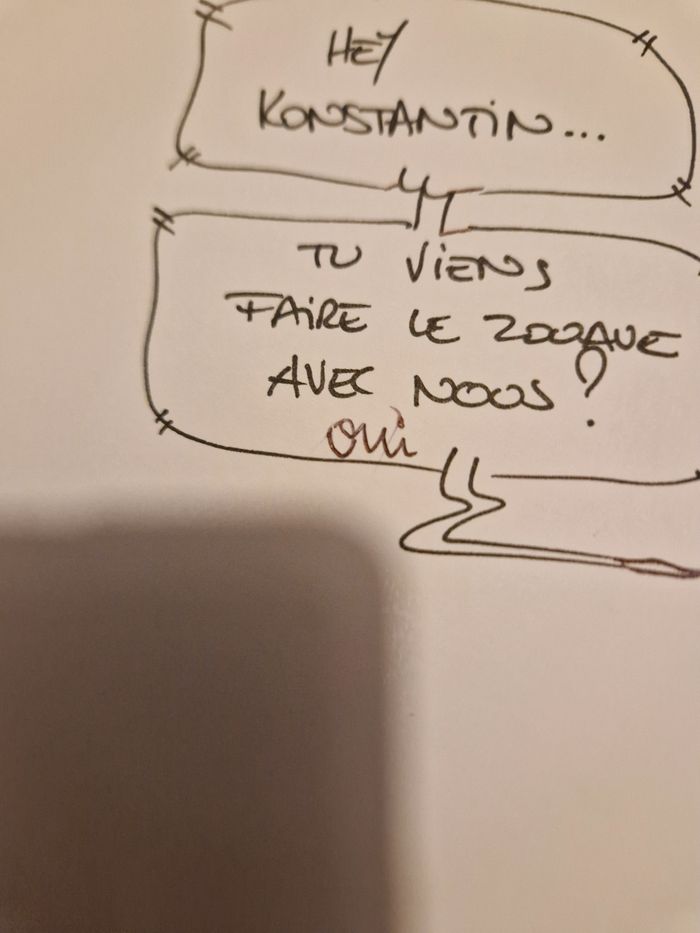 HEY
KONSTANTIN...
TU VIENS
FAIRE LE ZOUAVE
AVEC NOUS ?
oui